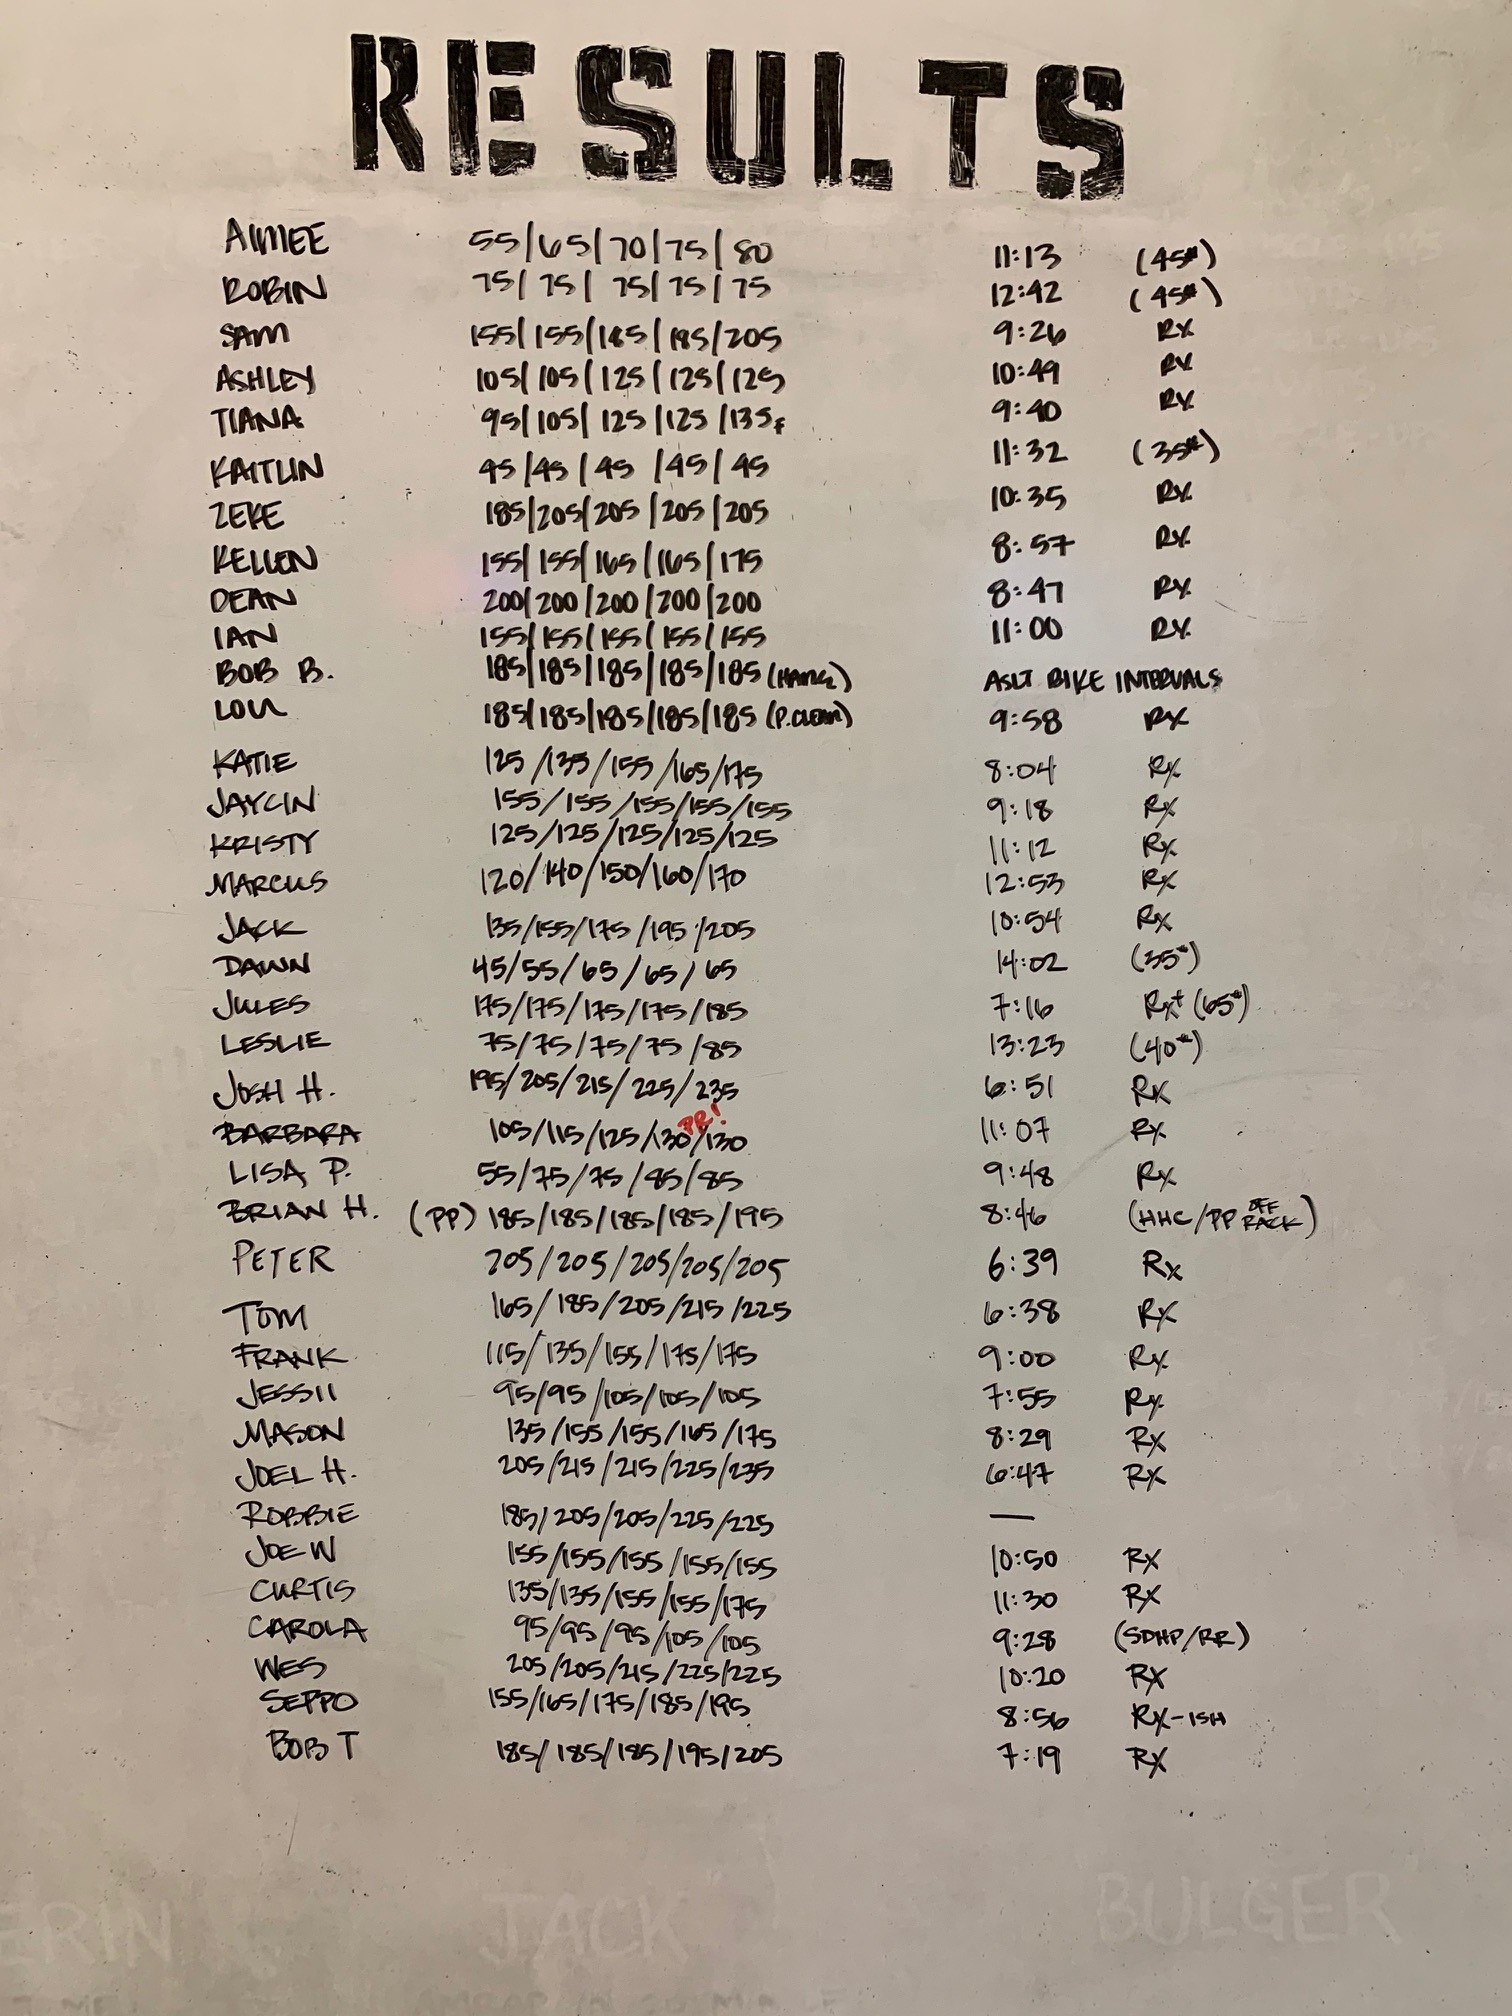 RESULTS
AIMEE 55/65/70/75/80 11:13 (45#)
ROBIN 75/75/75/75/75 12:42 (45#)
SAM 155/155/185/195/205 9:26 RX
ASHLEY 105/105/125/125/125 10:49 RX
TIANA 95/105/125/125/135f 9:40 RX
KAITLIN 45/45/45/45/45 11:32 (35#)
ZEKE 185/205/205/205/205 10:35 RX
KELLEN 155/155/165/165/175 8:57 RX
DEAN 200/200/200/200/200 8:47 RX
IAN 155/155/155/155/155 11:00 RX
BOB B. 185/185/185/185/185 (HANG) ASLT BIKE INTERVALS
LOU 185/185/185/185/185 (P.CLEAN) 9:58 RX
KATIE 125/135/155/165/175 8:04 Rx
JAYCIN 155/155/155/155/155 9:18 Rx
KRISTY 125/125/125/125/125 11:12 Rx
MARCUS 120/140/150/160/170 12:53 Rx
JACK 135/155/175/195/205 10:54 Rx
DAWN 45/55/65/65/65 14:02 (35#)
JULES 175/175/175/175/185 7:16 Rx+ (65#)
LESLIE 75/75/75/75/85 13:23 (40#)
JOSH H. 195/205/215/225/235 6:51 RX
PR!
BARBARA 105/115/125/130/130 11:07 Rx
LISA P. 55/75/75/85/85 9:48 Rx
BRIAN H. (PP) 185/185/185/185/195 8:46 (HHC/PP OFF RACK)
PETER 205/205/205/205/205 6:39 Rx
TOM 165/185/205/215/225 6:38 RX
FRANK 115/135/155/175/175 9:00 Rx
JESSII 95/95/105/105/105 7:55 Rx
MASON 135/155/155/165/175 8:29 RX
JOEL H. 205/215/215/225/235 6:47 RX
ROBBIE 185/205/205/225/225 —
JOE W 155/155/155/155/155 10:50 RX
CURTIS 135/135/155/155/175 11:30 RX
CAROLA 95/95/95/105/105 9:28 (SDHP/RR)
WES 205/205/215/225/225 10:20 RX
SEPPO 155/165/175/185/195 8:56 RX-ISH
BOB T 185/185/185/195/205 7:19 RX
ERIN JACK BULGER